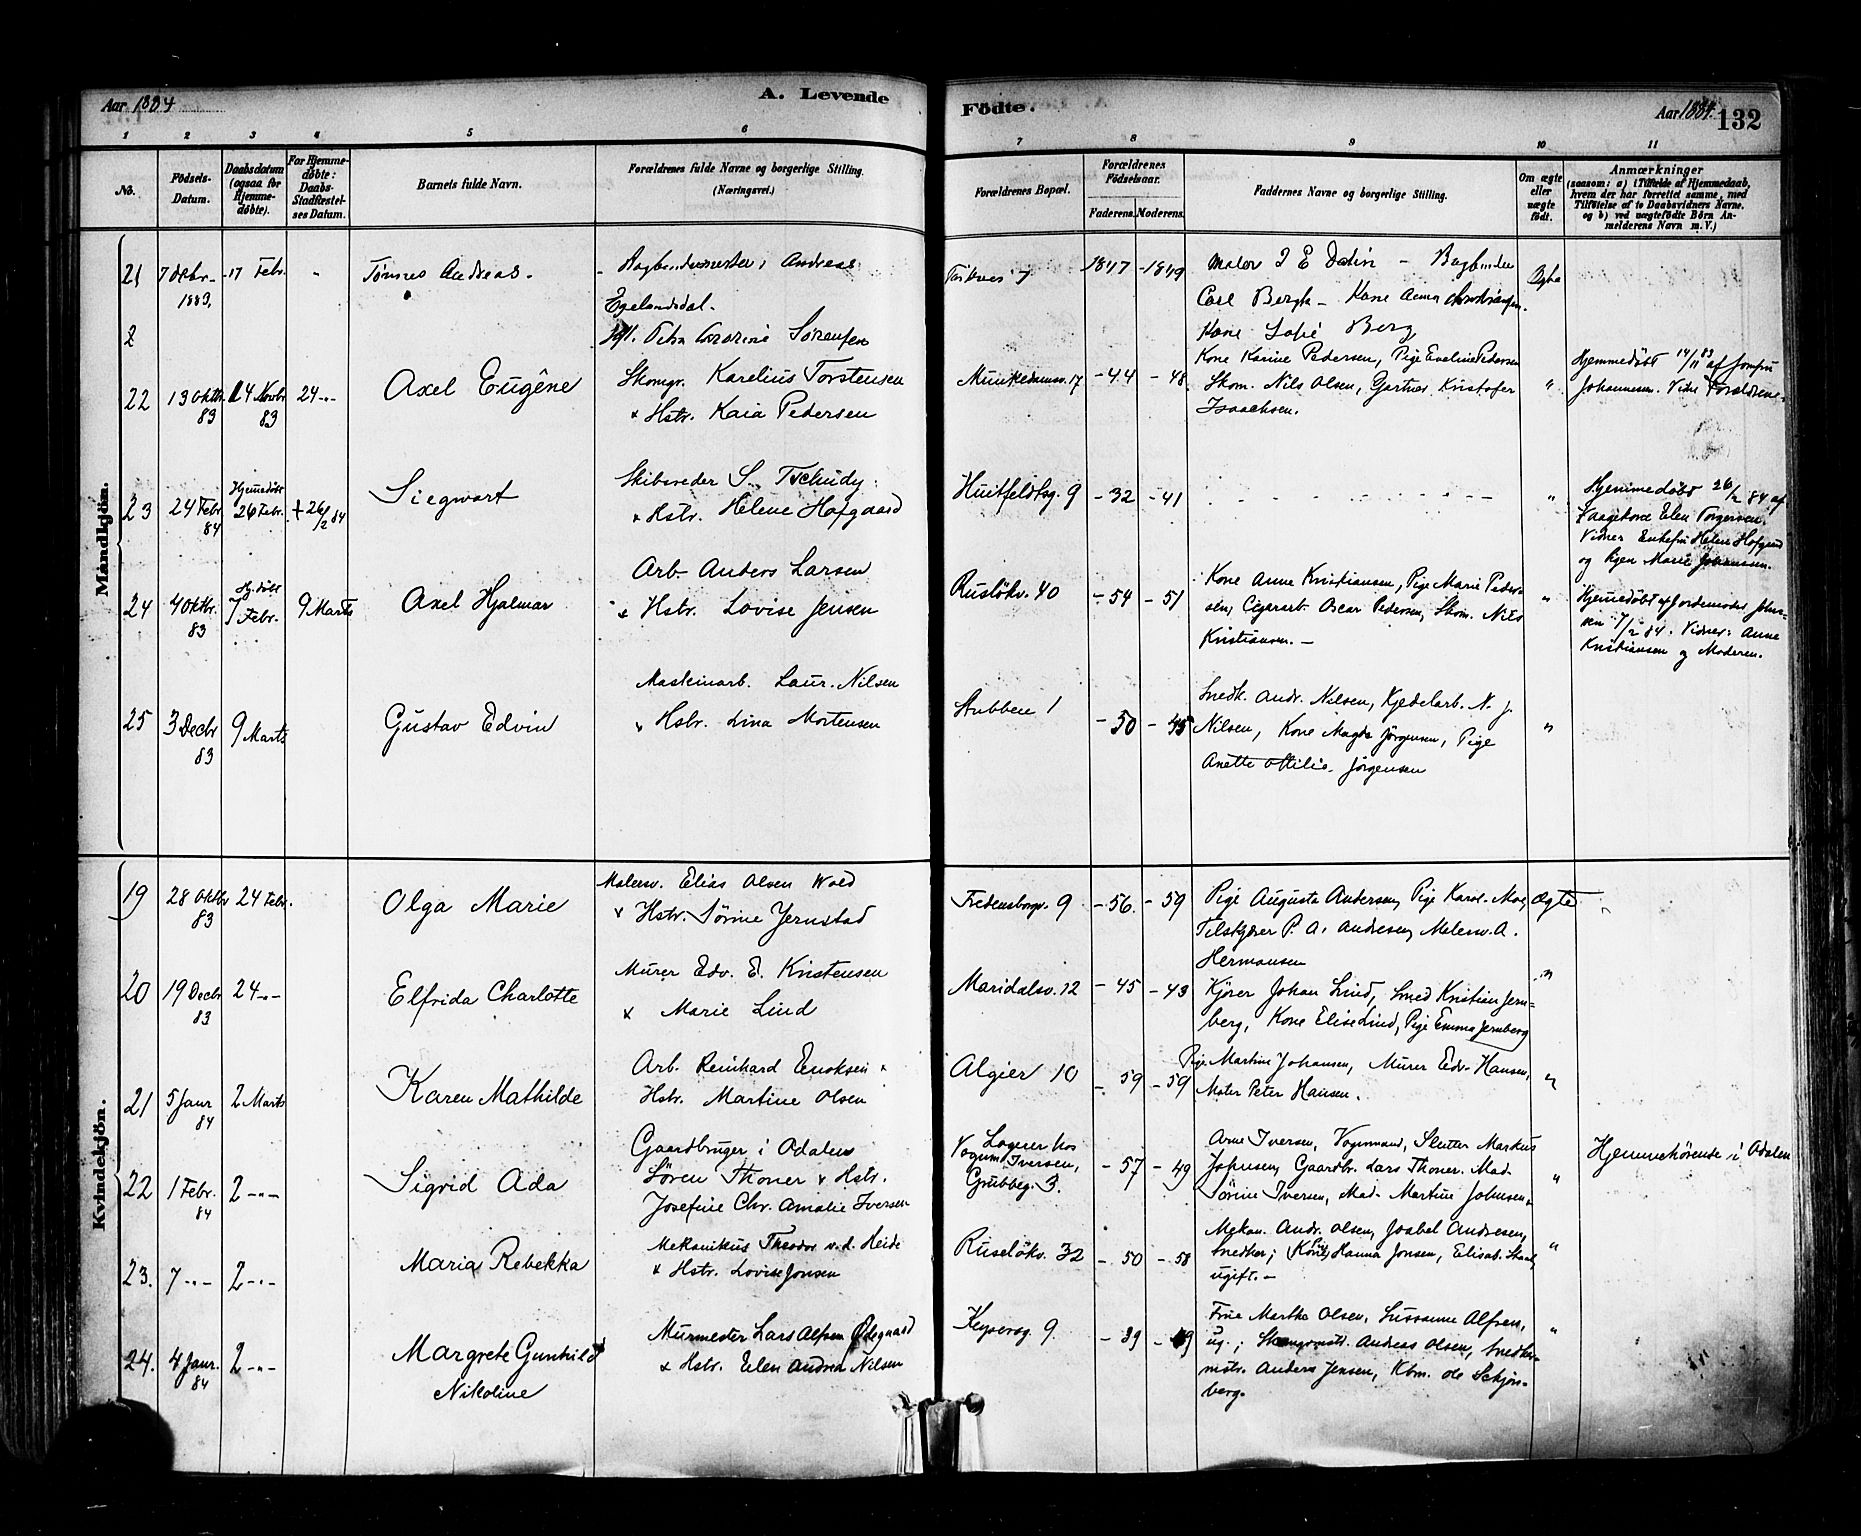 Aar 1884
A. Levende
Födte.
Aar 1884.
132
1 2 3 4 5 6 7 8 9 10 11
No.
Födsels-
Datum.
Daabsdatum
(ogsaa for
Hjemme-
döbte).
For Hjemme-
döbte:
Daabs-
Stadfæstel-
ses Datum.
Barnets fulde Navn.
Forældrenes fulde Navne og borgerlige Stilling.
(Næringsvei.)
Forældrenes Bopæl.
Forældrenes
Födselsaar.
Faderens. Moderens.
Faddernes Navne og borgerlige Stilling.
Om ægte
eller
uægte
födt.
Anmærkninger
(saasom: a) i Tilfælde af Hjemmedaab,
hvem der har forrettet samme, med
Tilföielse af to Daabsvidners Navne.
og b) ved uægtefödte Börn An-
melderens Navn m. V.)
Mandkjön.
21
17 Febr.
1883.
Tönnes Andreas.
Bogbindermester Andreas
Egelandsdal.
Sörensen
1847 - 1849
Maler I E Dalin - Bogbinder
Carl Bergh - Kone Anna
Kone Sofie Berg
22
13 Oktbr.
83
14 Novbr
83
24 -"-
Axel Eugêne
Skomgr. Karelius Torstensen
& Hstr. Kaia Pedersen
Munkedamsv. 17
- 44 - 48
Kone Karine Pedersen, Pige Eveline Pedersen
Skom. Nils Olsen, Gartner Kristofer
Isaachsen.
"
Hjemmedöbt 14/11 83 af Jomfru
Johannesen. Vidne Forældrene
23
24 Febr
84
Hjemmedöbt
26 Febr.
+ 26/2 84
Siegwart
Skibsreder S. Tschudy
& Hstr. Helene Hofgaard
Huitfeldtsg. 9
- 32 - 41
"
Hjemmedöbt 26/2 84 af
Vaagekone Elen Torgersen.
Vidner Enkefru Helene Hofgaard
og Pigen Marie Johannesen.
24
4 Oktbr.
83
Hj. döbt
7 Febr.
9 Marts
Axel Hjalmar
Arb. Anders Larsen
& Hstr. Lovise Jensen
Ruslökv. 40
- 54 - 51
Kone Anne Kristiansen, Pige Marie Peder-
sen, Cigararb. Oscar Pedersen, Skom. Nils
Kristiansen. -
"
Hjemmedöbt af Jordemoder Johan-
sen 7/2 84. Vidner: Anne
Kristiansen og Moderen.
25
3 Decbr
83
9 Marts
Gustav Edvin
Maskinarb. Laur. Nilsen
& Hstr. Lina Mortensen
Stubben 1
- 50 - 45
Snedk. Andr. Nilsen, Kjedelarb. N. J.
Nilsen, Kone Magda Jörgensen, Pige
Anette Otilie Jörgensen
"
Kvindekjön.
19
28 Oktbr
83
24 Febr.
Olga Marie
Malersv. Elias Olsen Wold
& Hstr. Sörine Jernstad
Fredensborgv. 9
- 56. - 59
Pige Augusta Andersen, Pige Karol. Moe,
P. A. Andresen, Malersv. A.
Hermansen
Ægte
20
19 Decbr
83
24 -"-
Elfrida Charlotte
Murer Edv. E. Kristensen
& Marie Lind
Maridalsv. 12
- 45 - 43
Kjörer Johan Lind, Smed Kristian Jern-
berg, Kone Elise Lind, Pige Emma Jernberg
"
21
5 Janr
84
2 Marts
Karen Mathilde
Arb. Reinhard Enoksen &
Hstr. Martine Olsen
Algier 10
- 59 - 59
Pige Martine Johansen, Murer Edv. Hansen,
Maler Peter Hansen.
"
22
1 Febr.
84
2 -"-
Sigrid Ada
Gaardbruger i Odalen
Sören Thoner & Hstr.
Josefine Chr. Amalie Iversen
Logerer hos
Vognm. Iversen,
Grubbeg. 3.
- 57 - 49
Arne Iversen, Vognmand, Slutter Markus
Johnsen, Gaardbr. Lars Thoner. Mad.
Sörine Iversen, Mad. Martine Johnsen.
"
Hjemmehörende i Odalen
23.
7 -"-
2 -"-
Maria Rebekka
Mekanikus Theodor v. d. Heide
& Hstr. Lovise Jonsen
Ruselökv. 32
- 50 - 58
Mekan. Andr. Olsen, Isabel Andresen,
Snedker; Hanna Jonsen, Elisab.
ugift. -
"
24.
4 Janr.
84
2 -"-
Margrete Gunhild
Nikoline
Murmester Lars Alfsen Ödegaard
& Hstr. Elen Andrea Nilsen
Keysersg. 9
- 39 - 49
Frue Marthe Olsen, Susanne Alfsen,
ug.; Skomgrmstr. Andreas Olsen, Snedker-
mstr. Anders Jensen, Kbm. Ole Schjön-
berg.
"